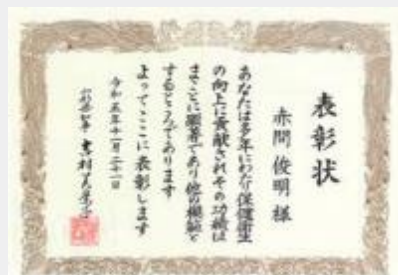 表彰状
赤間俊明様
あなたは多年にわたり保健衛生
の向上に貢献されその功績は
まことに顕著であり他の模範と
するところであります
よってここに表彰します
令和五年十一月二十一日
山形県知事 吉村美栄子